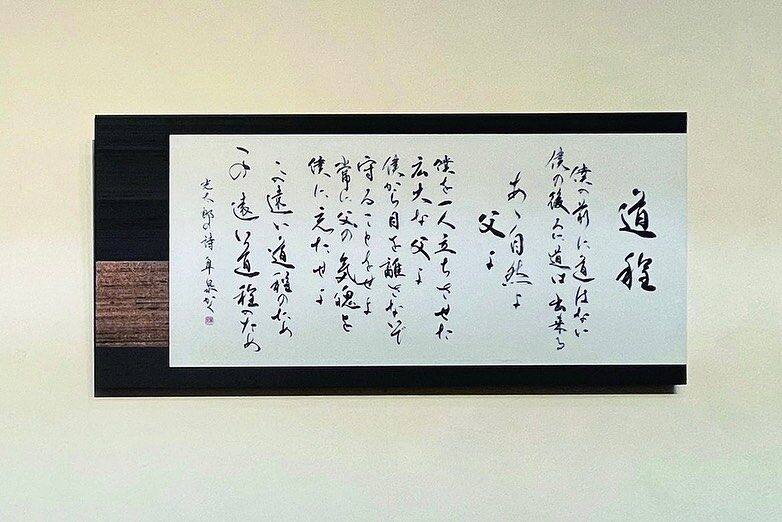 道程
僕の前に道はない
僕の後ろに道は出来る
あゝ自然よ
父よ
僕を一人立ちさせた
広大な父よ
僕から目を離さないで
守ることをせよ
常に父の気魄を
僕に充たせよ
この遠い道程のため
この遠い道程のため
光太郎の詩